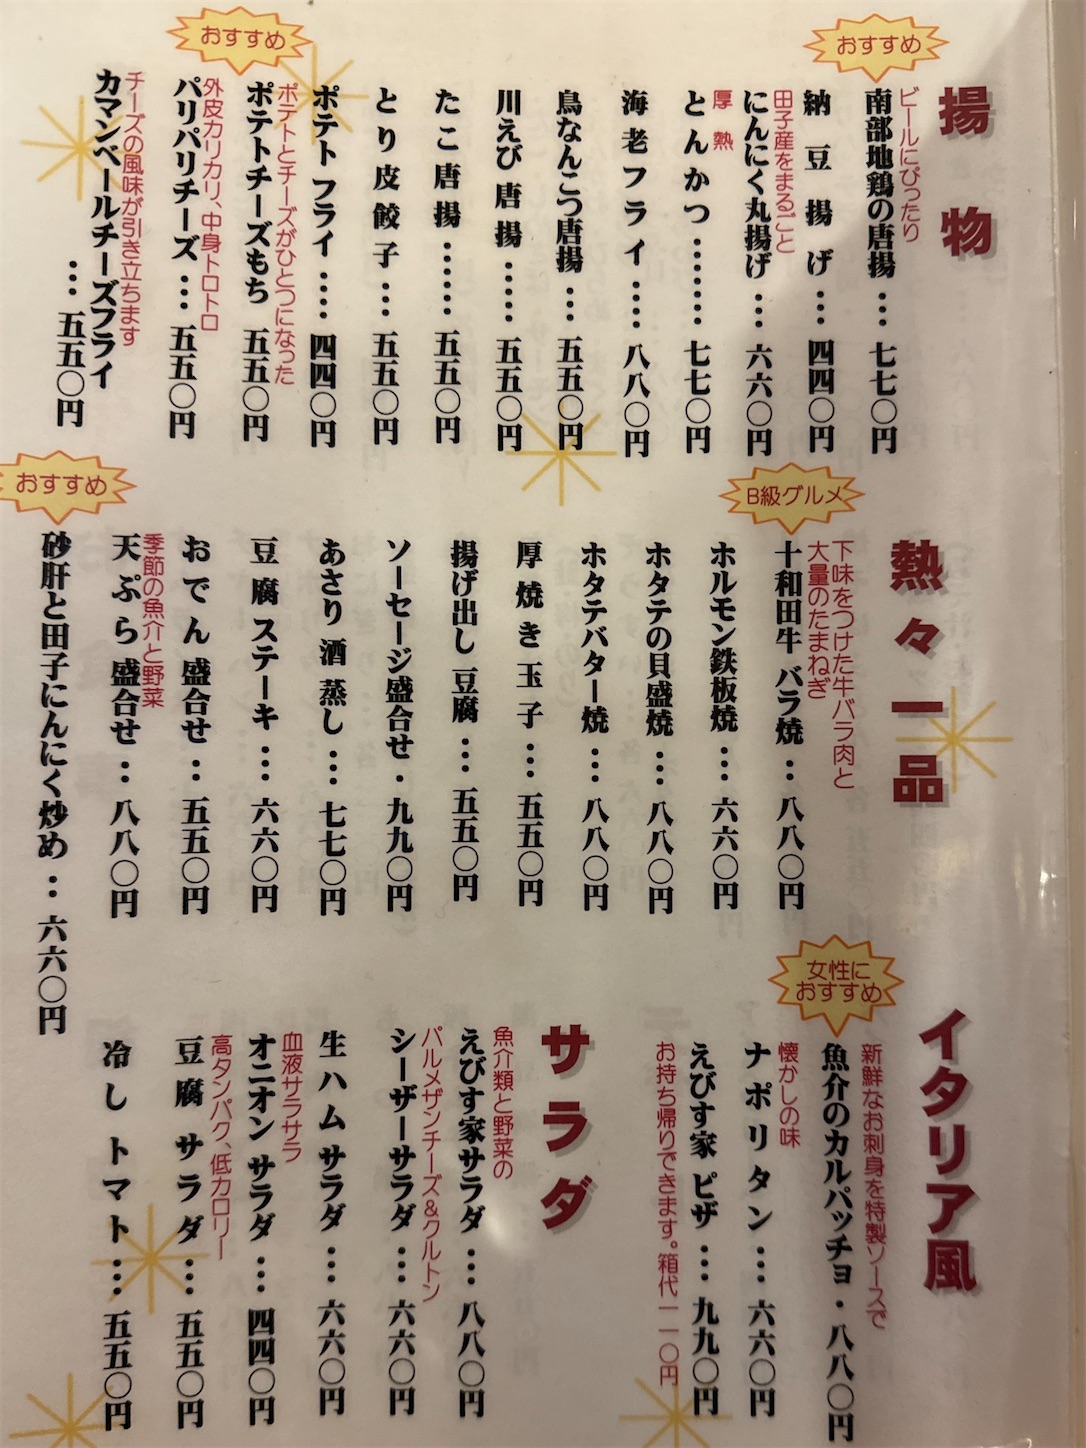 揚物
おすすめ
ビールにぴったり
南部地鶏の唐揚…七七〇円
納豆揚げ…四四〇円
田子産をまるごと
にんにく丸揚げ…六六〇円
厚熱
とんかつ……七七〇円
海老フライ……八八〇円
鳥なんこつ唐揚…五五〇円
川えび唐揚……五五〇円
たこ唐揚……五五〇円
とり皮餃子…五五〇円
ポテトフライ……四四〇円
おすすめ
ポテトとチーズがひとつになった
ポテトチーズもち 五五〇円
外皮カリカリ、中身トロトロ
パリパリチーズ…五五〇円
チーズの風味が引き立ちます
カマンベールチーズフライ
…五五〇円
熱々一品
B級グルメ
下味をつけた牛バラ肉と
大量のたまねぎ
十和田牛バラ焼‥八八〇円
ホルモン鉄板焼…六六〇円
ホタテの貝盛焼…八八〇円
ホタテバター焼…八八〇円
厚焼き玉子…五五〇円
揚げ出し豆腐…五五〇円
ソーセージ盛合せ・九九〇円
あさり酒蒸し…七七〇円
豆腐ステーキ…六六〇円
おでん盛合せ‥五五〇円
季節の魚介と野菜
天ぷら盛合せ‥八八〇円
おすすめ
砂肝と田子にんにく炒め‥六六〇円
イタリア風
女性に
おすすめ
新鮮なお刺身を特製ソースで
魚介のカルパッチョ・八八〇円
懐かしの味
ナポリタン…六六〇円
えびす家ピザ…九九〇円
お持ち帰りできます。箱代一一〇円
サラダ
魚介類と野菜の
えびす家サラダ…八八〇円
パルメザンチーズ&クルトン
シーザーサラダ…六六〇円
生ハムサラダ…六六〇円
血液サラサラ
オニオンサラダ…四四〇円
高タンパク、低カロリー
豆腐サラダ…五五〇円
冷しトマト…五五〇円